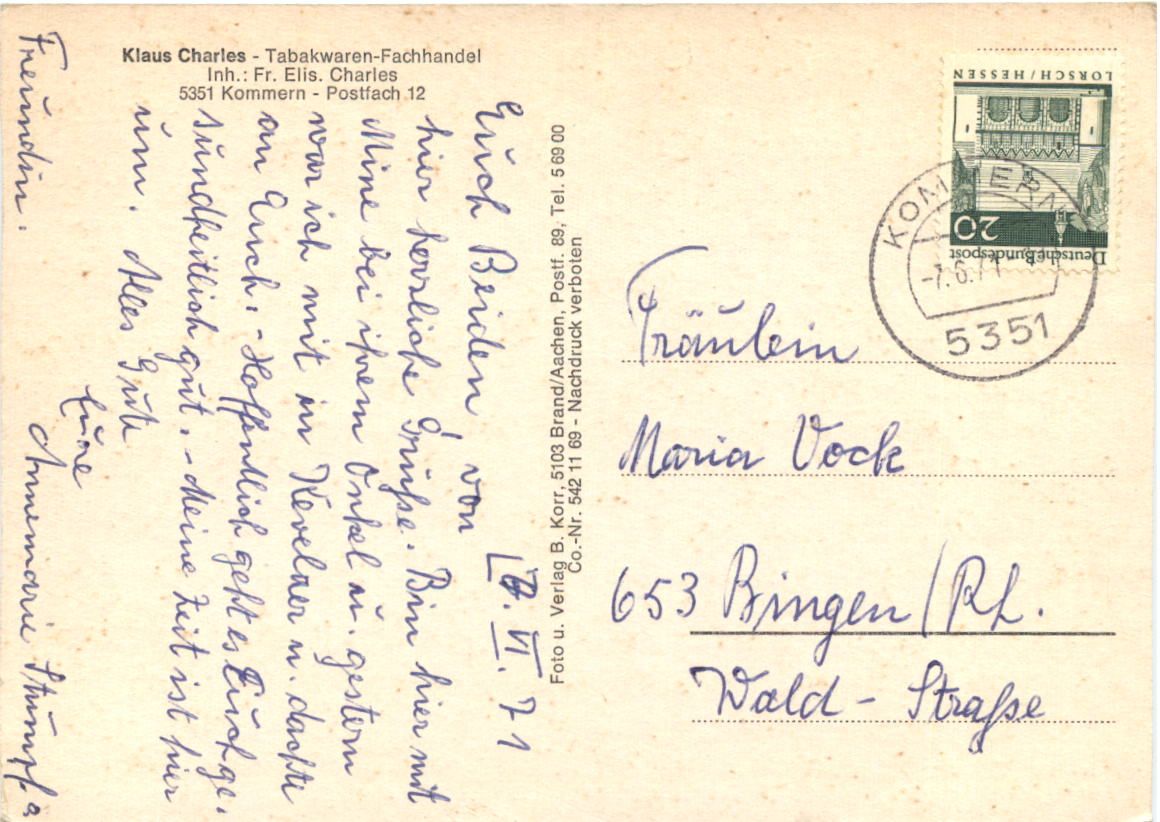 Klaus Charles - Tabakwaren-Fachhandel
Inh.: Fr. Elis. Charles
5351 Kommern - Postfach 12
VI. 71
Euch Beiden von
hier herzliche Grüße. Bin hier mit
Mine bei ihrem Onkel u. gestern
war ich mit in Kevelaer u. dachte
an Euch. - Hoffentlich geht es Euch ge-
sundheitlich gut. - Meine Zeit ist hier
um. Alles Gute
Eure
Annemarie Stumpf u.
Freundin.
Foto u. Verlag B. Korr, 5103 Brand/Aachen, Postf. 89, Tel. 5 69 00
Co.-Nr. 542 11 69 - Nachdruck verboten
LORSCH/HESSEN
20
Deutsche Bundespost
KOMMERN
-7.6.71
5351
Fräulein
Maria Vock
653 Bingen/Rh.
Wald - Straße